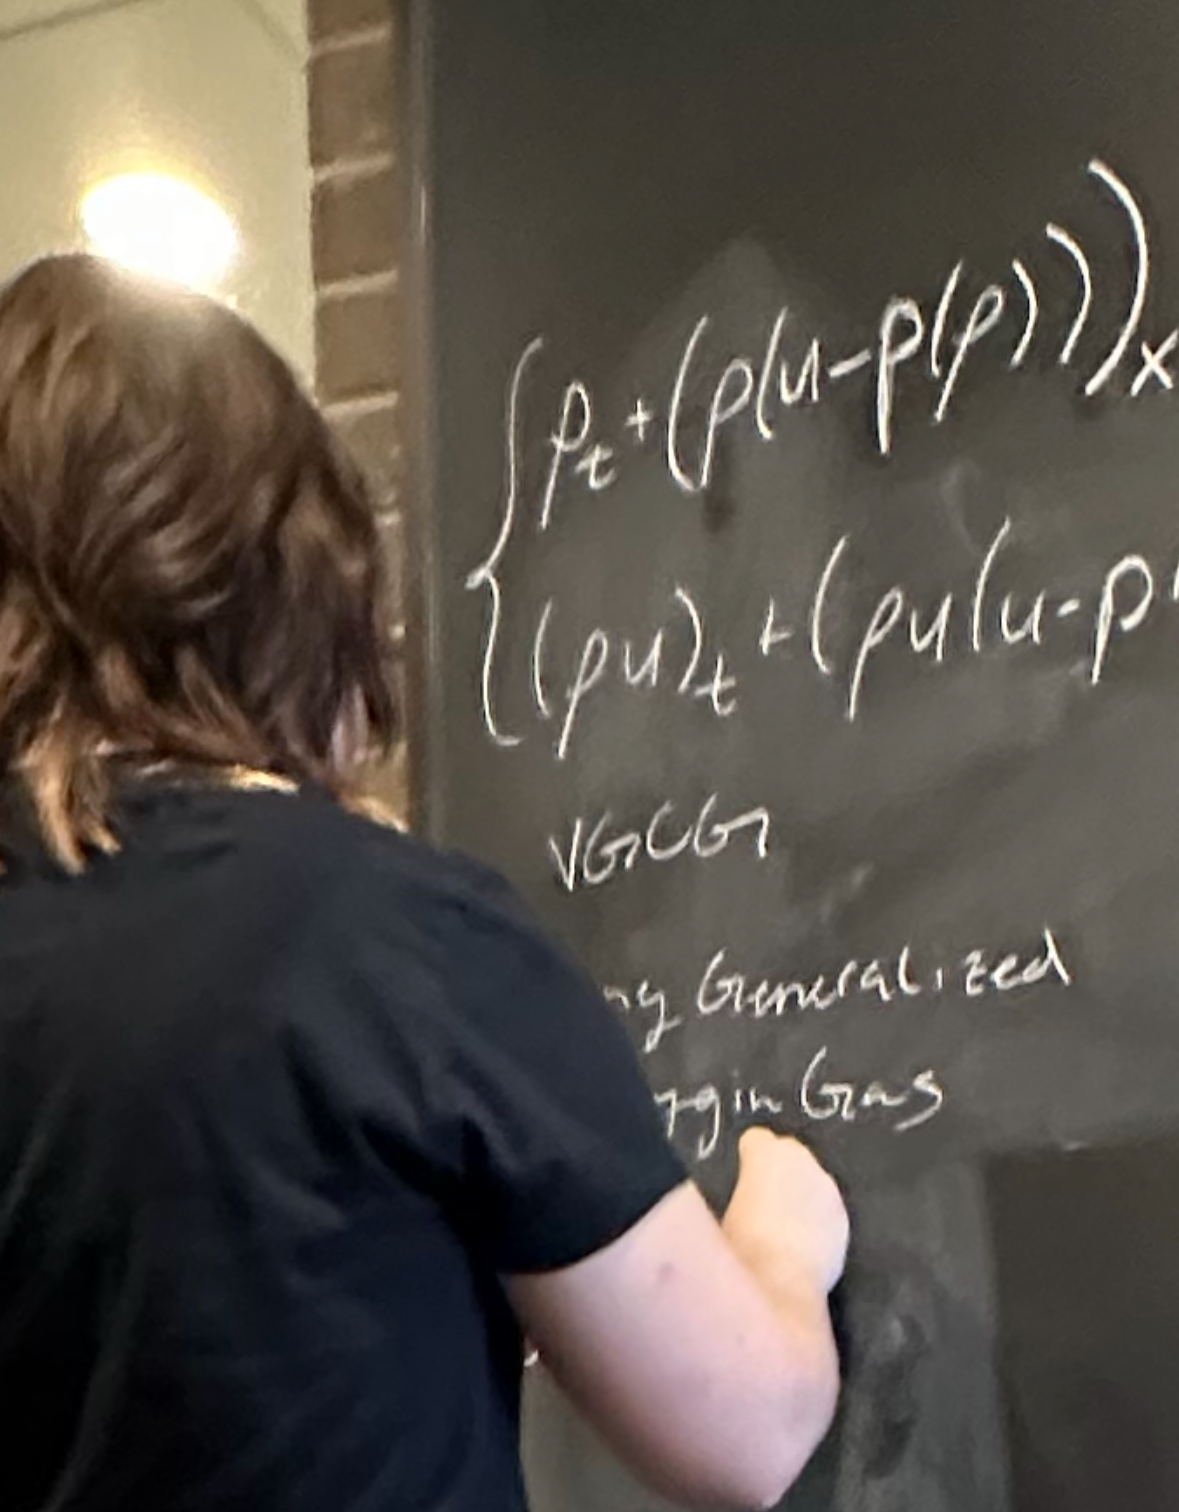 ρ_t + (ρ(u-p(ρ)))_x
(ρu)_t + (ρu(u-p
VGCG
Generalized
Gas